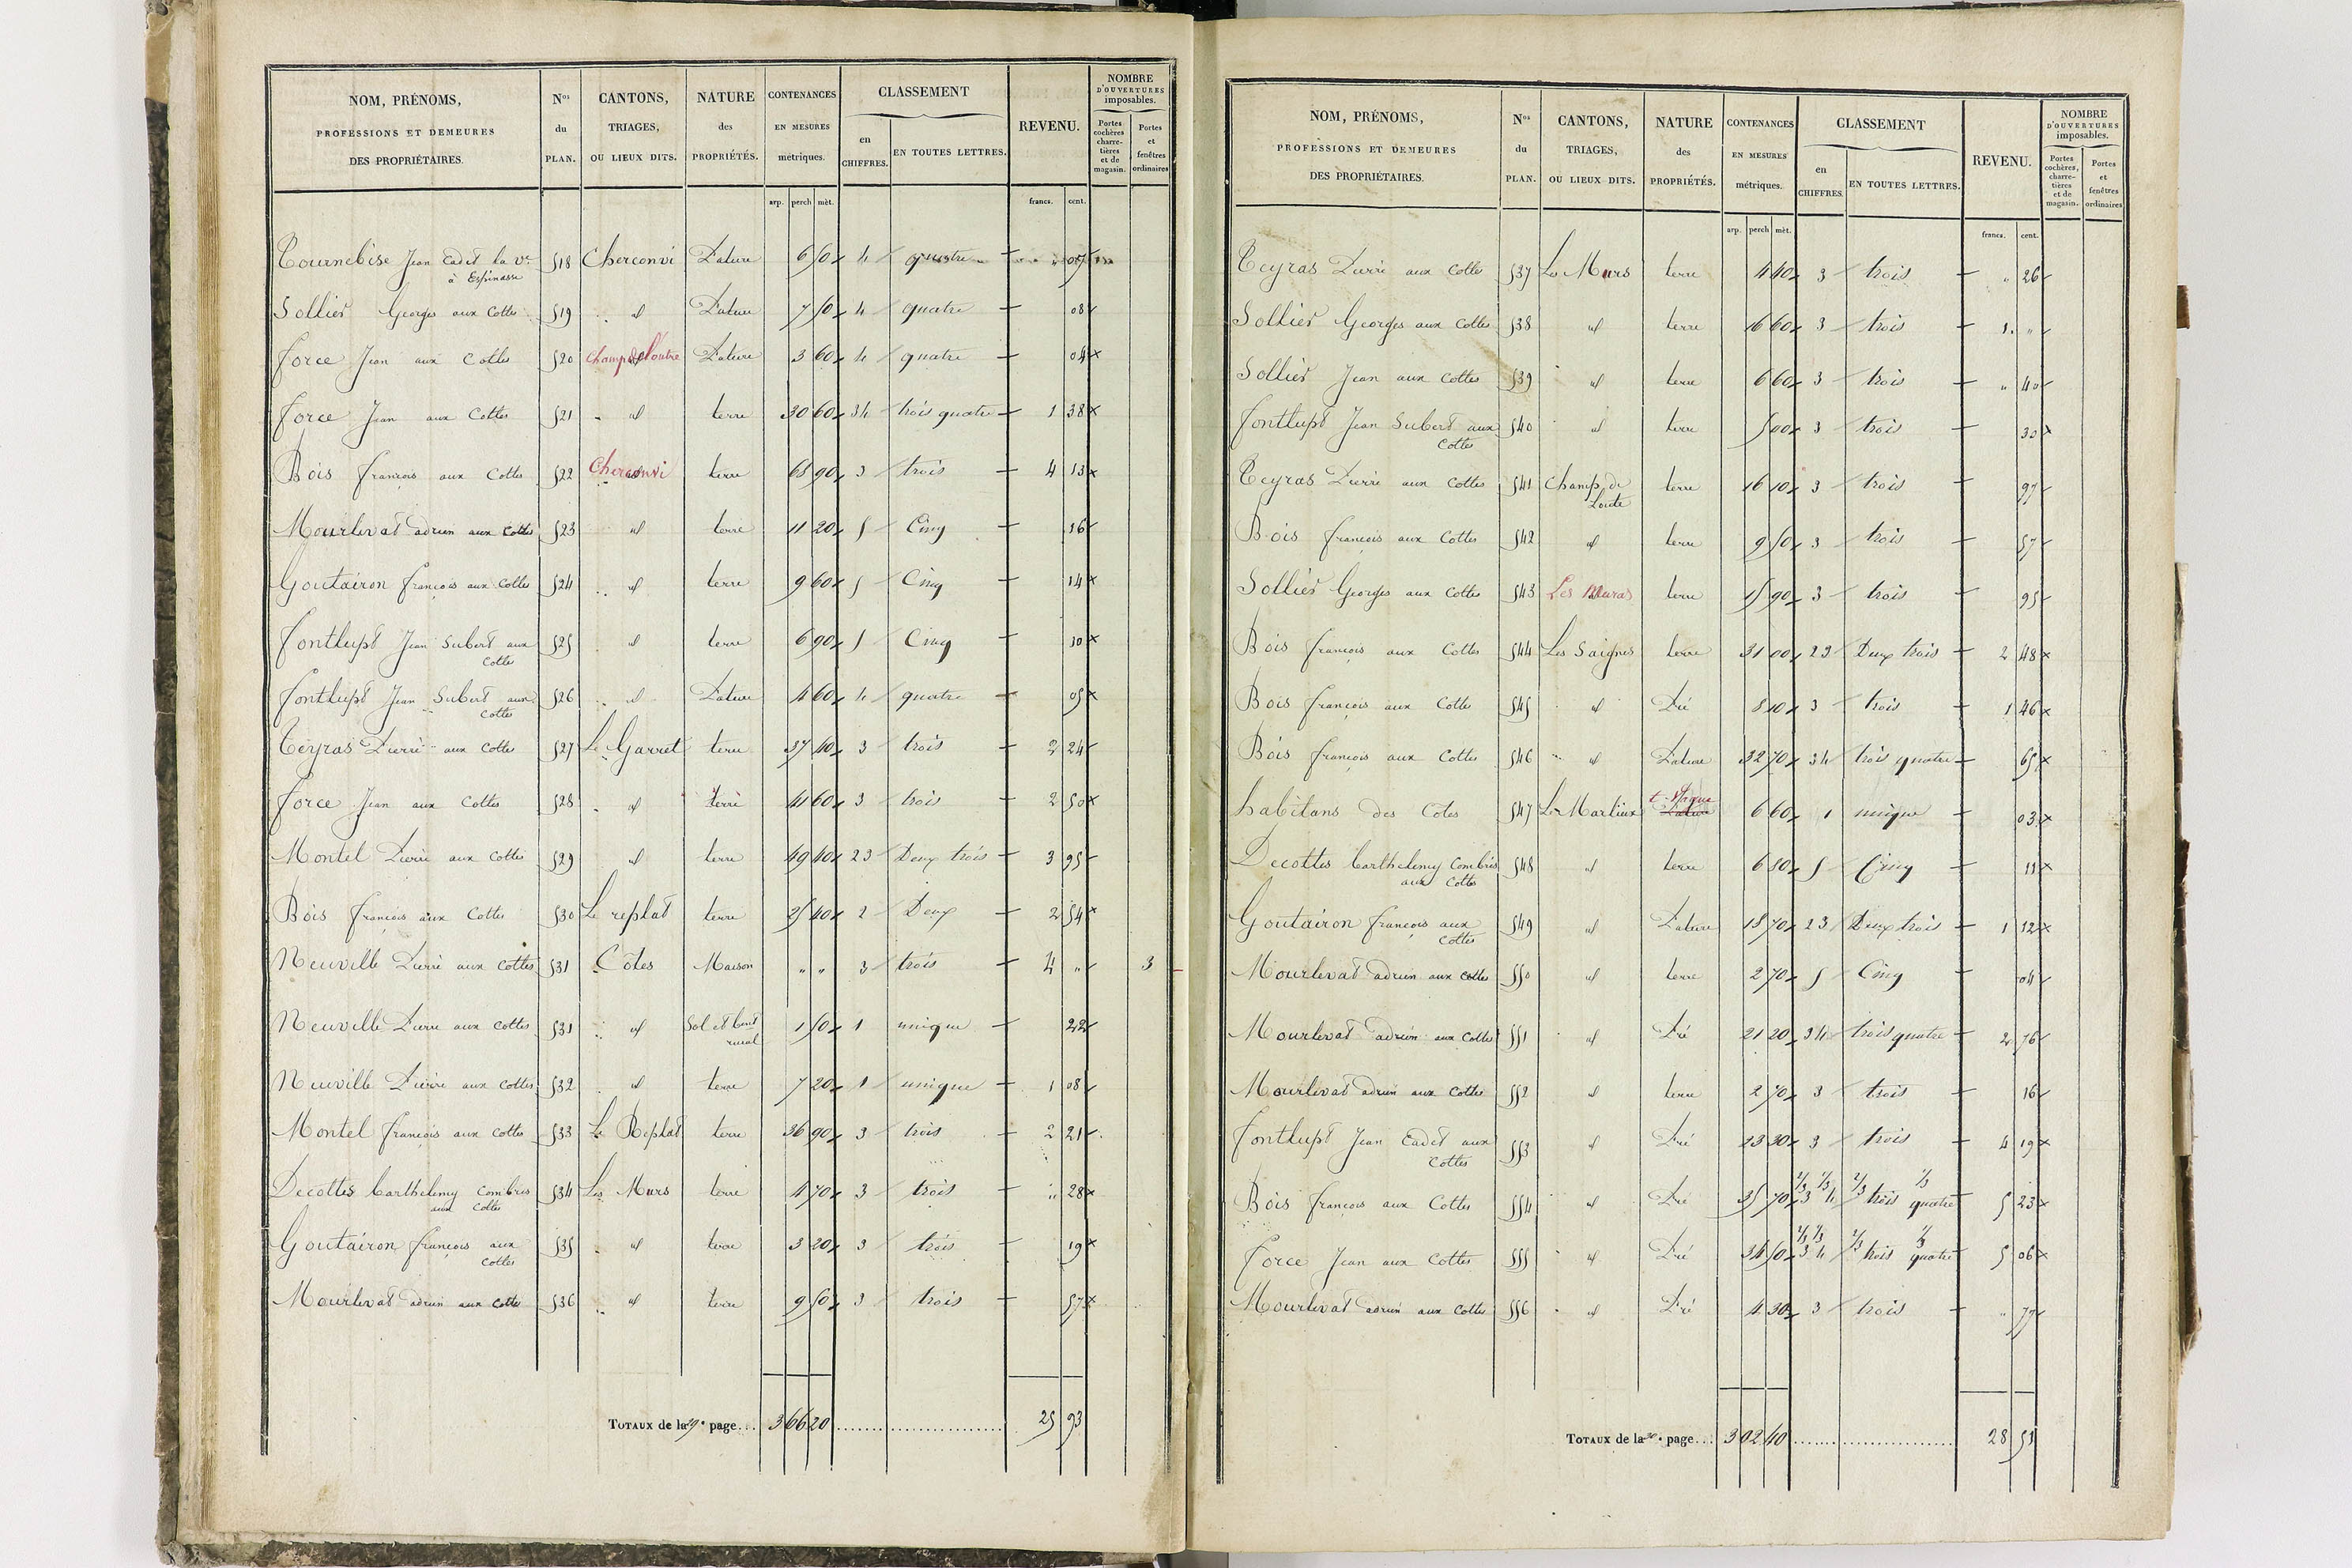 NOM, PRÉNOMS, PROFESSIONS ET DEMEURES DES PROPRIÉTAIRES. Nos du PLAN. CANTONS, TRIAGES, OU LIEUX DITS. NATURE des PROPRIÉTÉS. CONTENANCES EN MESURES métriques. CLASSEMENT en CHIFFRES. EN TOUTES LETTRES. REVENU. NOMBRE D'OUVERTURES imposables. Portes cochères charretières et de magasin. Portes et fenêtres ordinaires
arp. perch mèt. francs. cent.
Tournebise Jean Cadet la Ve à Espinasse 518 Cherconvi Pature 6 50 4 quatre " 07
Sollier Georges aux Cottes 519 id Pature 7 50 4 quatre 08
force Jean aux Cottes 520 Champ de Loutre Pature 3 60 4 quatre 04
force Jean aux Cottes 521 id terre 30 60 3 4 trois quatre 1 38
Bois françois aux Cottes 522 Cherconvi terre 68 90 3 trois 4 13
Mourlevat adrien aux Cottes 523 id terre 11 20 5 Cinq 16
Goutairon françois aux Cottes 524 id terre 9 60 5 Cinq 14
fontlupt Jean Subert aux Cottes 525 id terre 6 90 5 Cinq 10
fontlupt Jean Subert aux Cottes 526 id Pature 4 60 4 quatre 05
Teyras Pierre aux Cottes 527 Le Garret terre 37 40 3 trois 2 24
force Jean aux Cottes 528 id terre 41 60 3 trois 2 50
Montel Pierre aux Cottes 529 id terre 49 40 2 3 Deux trois 3 95
Bois françois aux Cottes 530 Le replat terre 25 40 2 Deux 2 54
Neuville Pierre aux Cottes 531 Côtes Maison " " 3 trois 4 " 3
Neuville Pierre aux Cottes 531 id Sol et bent rural 1 50 1 unique 22
Neuville Pierre aux Cottes 532 id terre 7 20 1 unique 1 08
Montel françois aux Cottes 533 Le Replat terre 36 90 3 trois 2 21
Decottes barthelemy Combris aux Cottes 534 Les Murs terre 4 70 3 trois " 28
Goutairon françois aux Cottes 535 id terre 3 20 3 trois 19
Mourlevat adrien aux Cottes 536 id terre 9 50 3 trois 57
TOTAUX de la 29e page... 3 66 20 25 93
NOM, PRÉNOMS, PROFESSIONS ET DEMEURES DES PROPRIÉTAIRES. Nos du PLAN. CANTONS, TRIAGES, OU LIEUX DITS. NATURE des PROPRIÉTÉS. CONTENANCES EN MESURES métriques. CLASSEMENT en CHIFFRES. EN TOUTES LETTRES. REVENU. NOMBRE D'OUVERTURES imposables. Portes cochères, charretières et de magasin. Portes et fenêtres ordinaires
arp. perch mèt. francs. cent.
Teyras Pierre aux Cottes 537 Les Murs terre 4 40 3 trois " 26
Sollier Georges aux Cottes 538 id terre 16 60 3 trois 1 "
Sollier Jean aux Cottes 539 id terre 6 60 3 trois " 40
fontlupt Jean Subert aux Cottes 540 id terre 5 00 3 trois 30
Teyras Pierre aux Cottes 541 Champ de Loute terre 16 10 3 trois 97
Bois françois aux Cottes 542 id terre 9 50 3 trois 57
Sollier Georges aux Cottes 543 Les Murs terre 15 90 3 trois 95
Bois françois aux Cottes 544 Les Saignes terre 31 00 2 3 Deux trois 2 48
Bois françois aux Cottes 545 id Pré 8 10 3 trois 1 46
Bois françois aux Cottes 546 id Pature 32 70 3 4 trois quatre 65
habitans des Cotes 547 Le Martieux Pature t. Vague 6 60 1 unique 03
Decottes barthelemy Combris aux Cottes 548 id terre 6 80 5 Cinq 11
Goutairon françois aux Cottes 549 id Pature 18 70 2 3 Deux trois 1 12
Mourlevat adrien aux Cottes 550 id terre 2 70 5 Cinq 04
Mourlevat adrien aux Cottes 551 id Pré 21 20 3 4 trois quatre 2 76
Mourlevat adrien aux Cottes 552 id terre 2 70 3 trois 16
fontlupt Jean Cadet aux Cottes 553 id Pré 23 30 3 trois 4 19
Bois françois aux Cottes 554 id Pré 35 70 2/3 3 1/3 4 2/3 trois 1/3 quatre 5 23
force Jean aux Cottes 555 id Pré 34 50 2/3 3 1/3 4 2/3 trois 1/3 quatre 5 06
Mourlevat adrien aux Cottes 556 id Pré 4 30 3 trois " 77
TOTAUX de la 30e page... 3 02 40 28 51